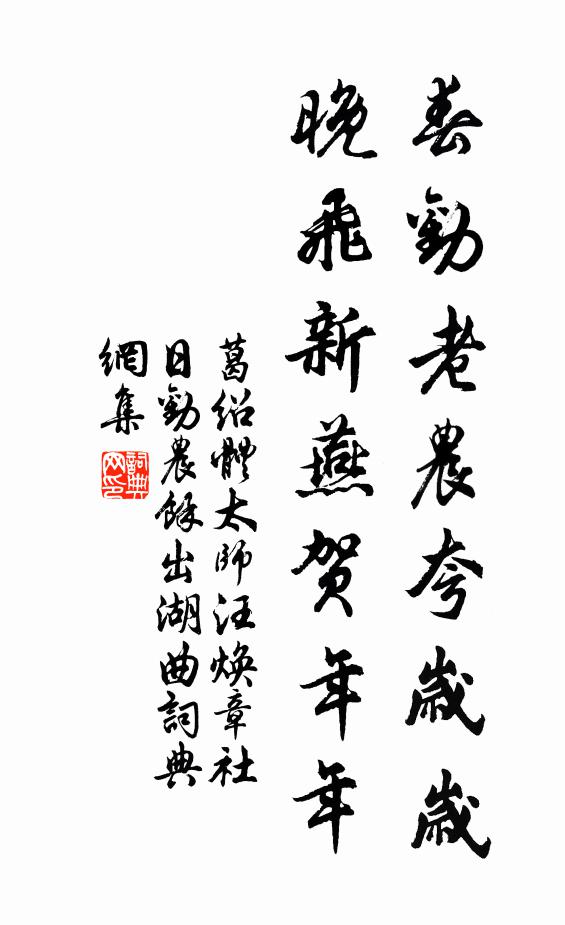 春勸老農夸歲歲
晚飛新燕賀年年
葛紹體太師汪煥章社
日勸農餘出湖曲詞典
網集
詞典網印